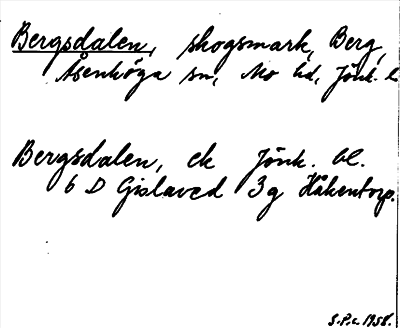 Bergsdalen, skogsmark, Berg,
Åsenhöga sn, Mo hd, Jönk. l.
Bergsdalen, ek Jönk. bl.
6 D Gislaved 3g Håkentorp.
S.P.c. 1958.